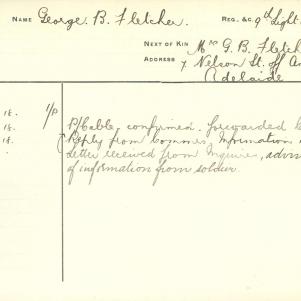 NAME George. B. Fletcher. REG. &C. 9th Light
NEXT OF KIN Mrs G. B. Fletch
ADDRESS 7 Nelson St. off An
Adelaide
18. 1/P
P/Cable, confirmed. forwarded
18. Reply from Commrs, Information
18. Letter received from Inquirer, advis
of information from soldier.